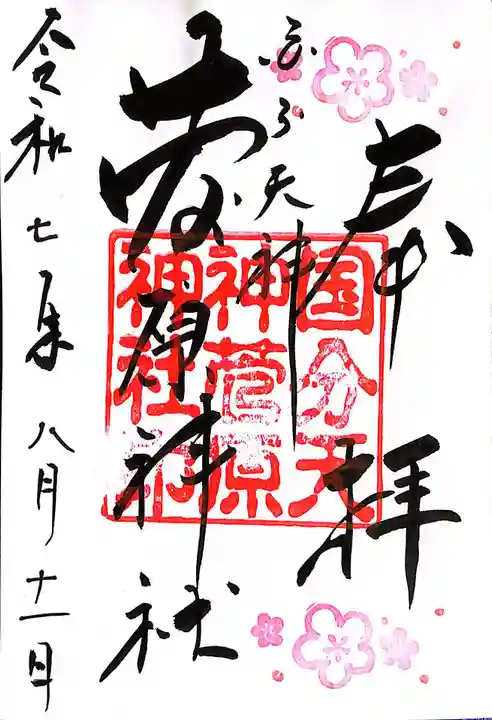 奉拝
国分天神
菅原神社
令和七年八月十一日
国分天
神菅原
神社印